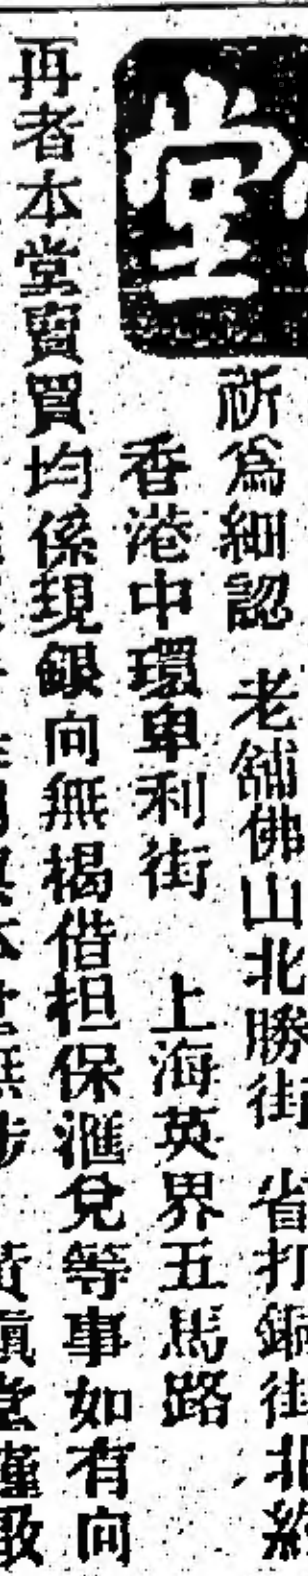 堂
祈為細認 老舖佛山北勝街 省打銅街北約
香港中環卑利街 上海英界五馬路
再者本堂賣買均係現銀向無揭借担保滙兌等事如有向
本堂無涉 黃慎堂謹啟